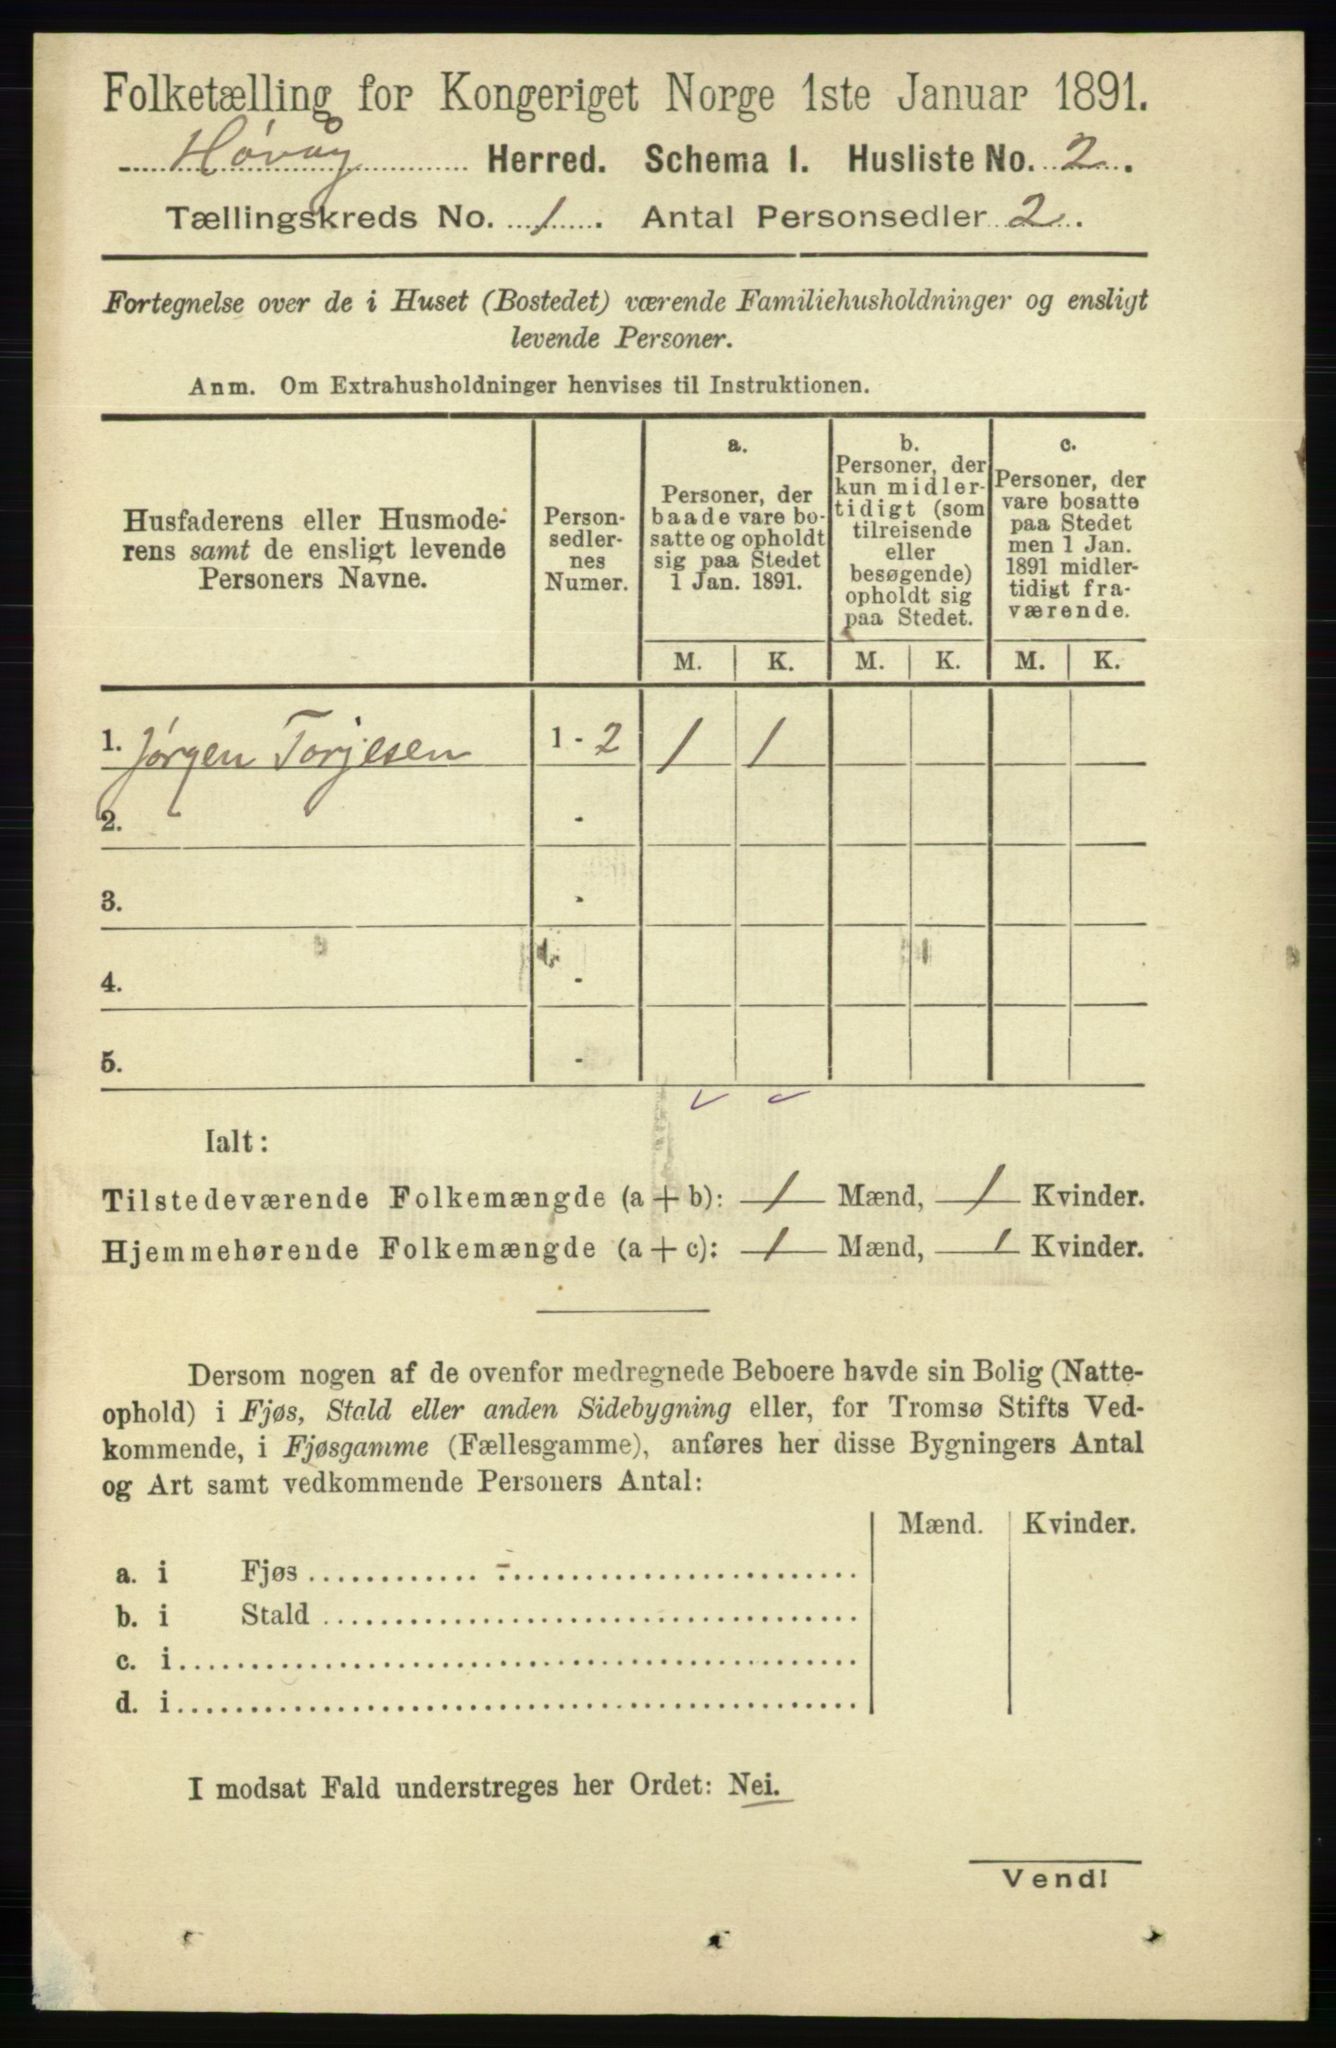 Folketælling for Kongeriget Norge 1ste Januar 1891.
Høvåg Herred. Schema 1. Husliste No. 2.
Tællingskreds No. 1. Antal Personsedler 2.
Fortegnelse over de i Huset (Bostedet) værende Familiehusholdninger og ensligt
levende Personer.
Anm. Om Extrahusholdninger henvises til Instruktionen.
Husfaderens eller Husmode-
rens samt de ensligt levende
Personers Navne.
Person-
sedler-
nes
Numer.
a.
Personer, der
baade vare bo-
satte og opholdt
sig paa Stedet
1 Jan. 1891.
b.
Personer, der
kun midler-
tidigt (som
tilreisende
eller
besøgende)
opholdt sig
paa Stedet.
c.
Personer, der
vare bosatte
paa Stedet
men 1 Jan.
1891 midler-
tidigt fra-
værende.
M. K. M. K. M. K.
1. Jørgen Torjesen 1 - 2 1 1
2. -
3. -
4. -
5. -
Ialt:
Tilstedeværende Folkemængde (a + b): 1 Mænd, 1 Kvinder.
Hjemmehørende Folkemængde (a + c): 1 Mænd, 1 Kvinder.
Dersom nogen af de ovenfor medregnede Beboere havde sin Bolig (Natte-
ophold) i Fjøs, Stald eller anden Sidebygning eller, for Tromsø Stifts Ved-
kommende, i Fjøsgamme (Fællesgamme), anføres her disse Bygningers Antal
og Art samt vedkommende Personers Antal:
Mænd. Kvinder.
a. i Fjøs
b. i Stald
c. i
d. i
I modsat Fald understreges her Ordet: Nei.
Vend!